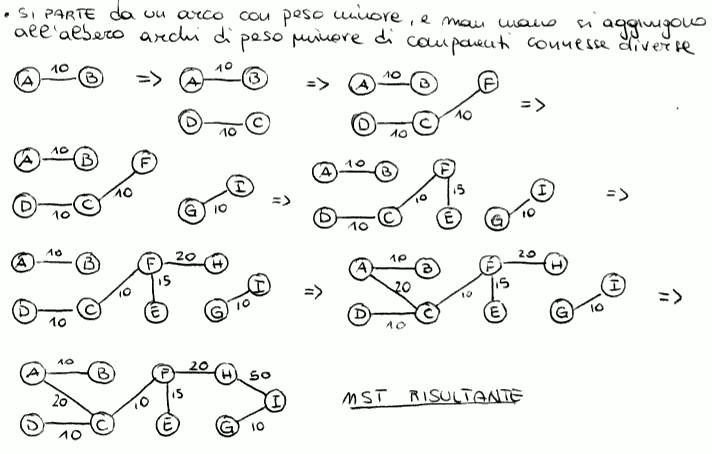 • SI PARTE da un arco con peso minore, e man mano si aggiungono
all'albero archi di peso minore di componenti connesse diverse
A 10 B => A 10 B => A 10 B F =>
D 10 C D 10 C 10
A 10 B F I => A 10 B F I =>
D 10 C 10 G 10 D 10 C 10 15 E G 10
A 10 B F 20 H I => A 10 B F 20 H I =>
D 10 C 10 15 E G 10 20 D 10 C 10 15 E G 10
A 10 B F 20 H 50 I MST RISULTANTE
20 D 10 C 10 15 E G 10